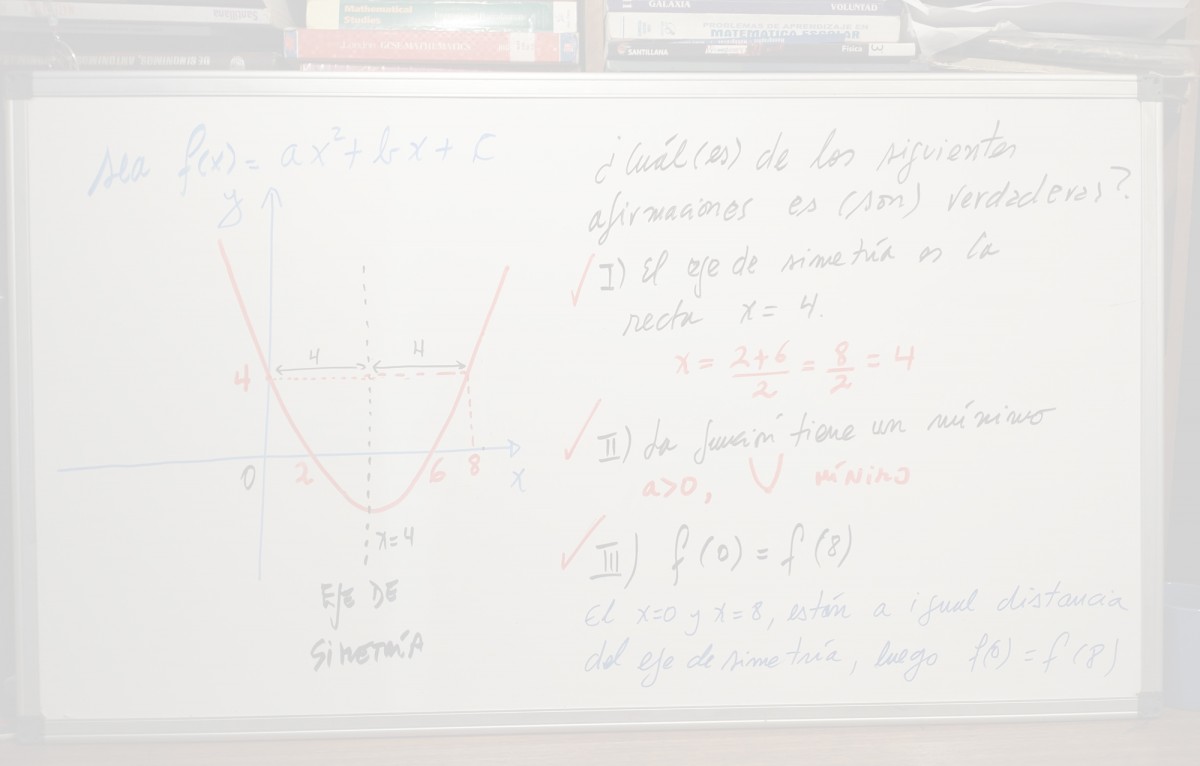 Mathematical
Studies
GALAXIA
VOLUNTAD
PROBLEMAS DE APRENDIZAJE EN
MATEMATICA ESCOLAR
SANTILLANA
Física
3
sea f(x) = ax²+bx+c
y
4
4
4
0
2
6
8
x
x=4
EJE DE
SIMETRÍA
¿Cuál(es) de los siguientes
afirmaciones es (son) verdaderas?
I) El eje de simetría es la
recta x = 4.
x = 2+6/2 = 8/2 = 4
II) La función tiene un mínimo
a>0, mínimo
III) f(0) = f(8)
El x=0 y x=8, están a igual distancia
del eje de simetría, luego f(0) = f(8)